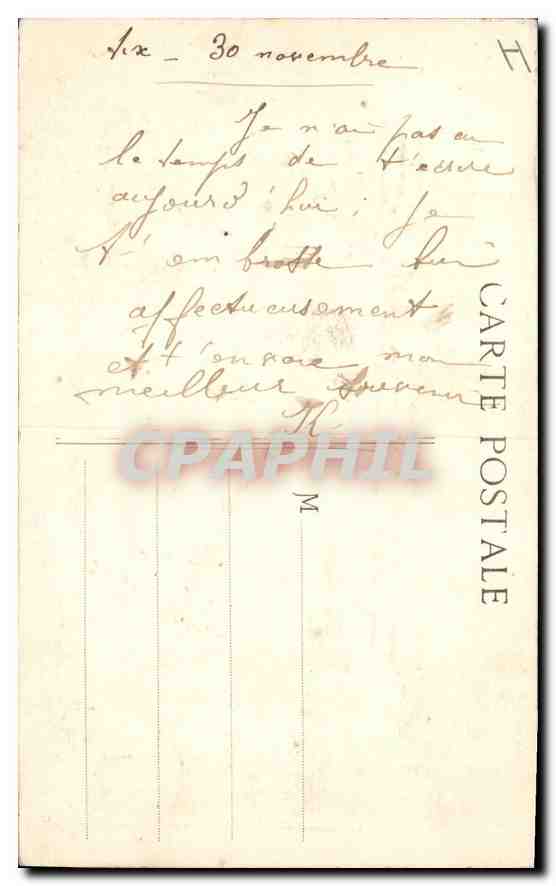 Aix - 30 novembre
Je n'ai pas eu
le temps de t'ecrire
aujourd'hui, je
t'embrasse bien
affectueusement
et t'envoie mon
meilleur souvenir
K
CPAPHIL
M
CARTE POSTALE